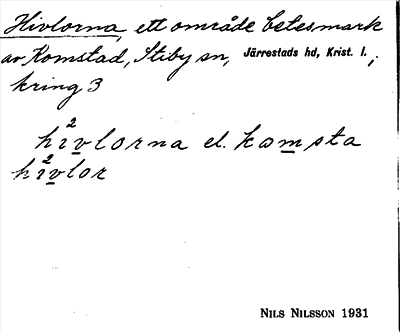 Hivlorna, ett område betesmark
av Komstad, Stiby sn, Järrestads hd, Krist. l.;
kring 3
hı²vlorna el. komsta
hı²vlor
NILS NILSSON 1931